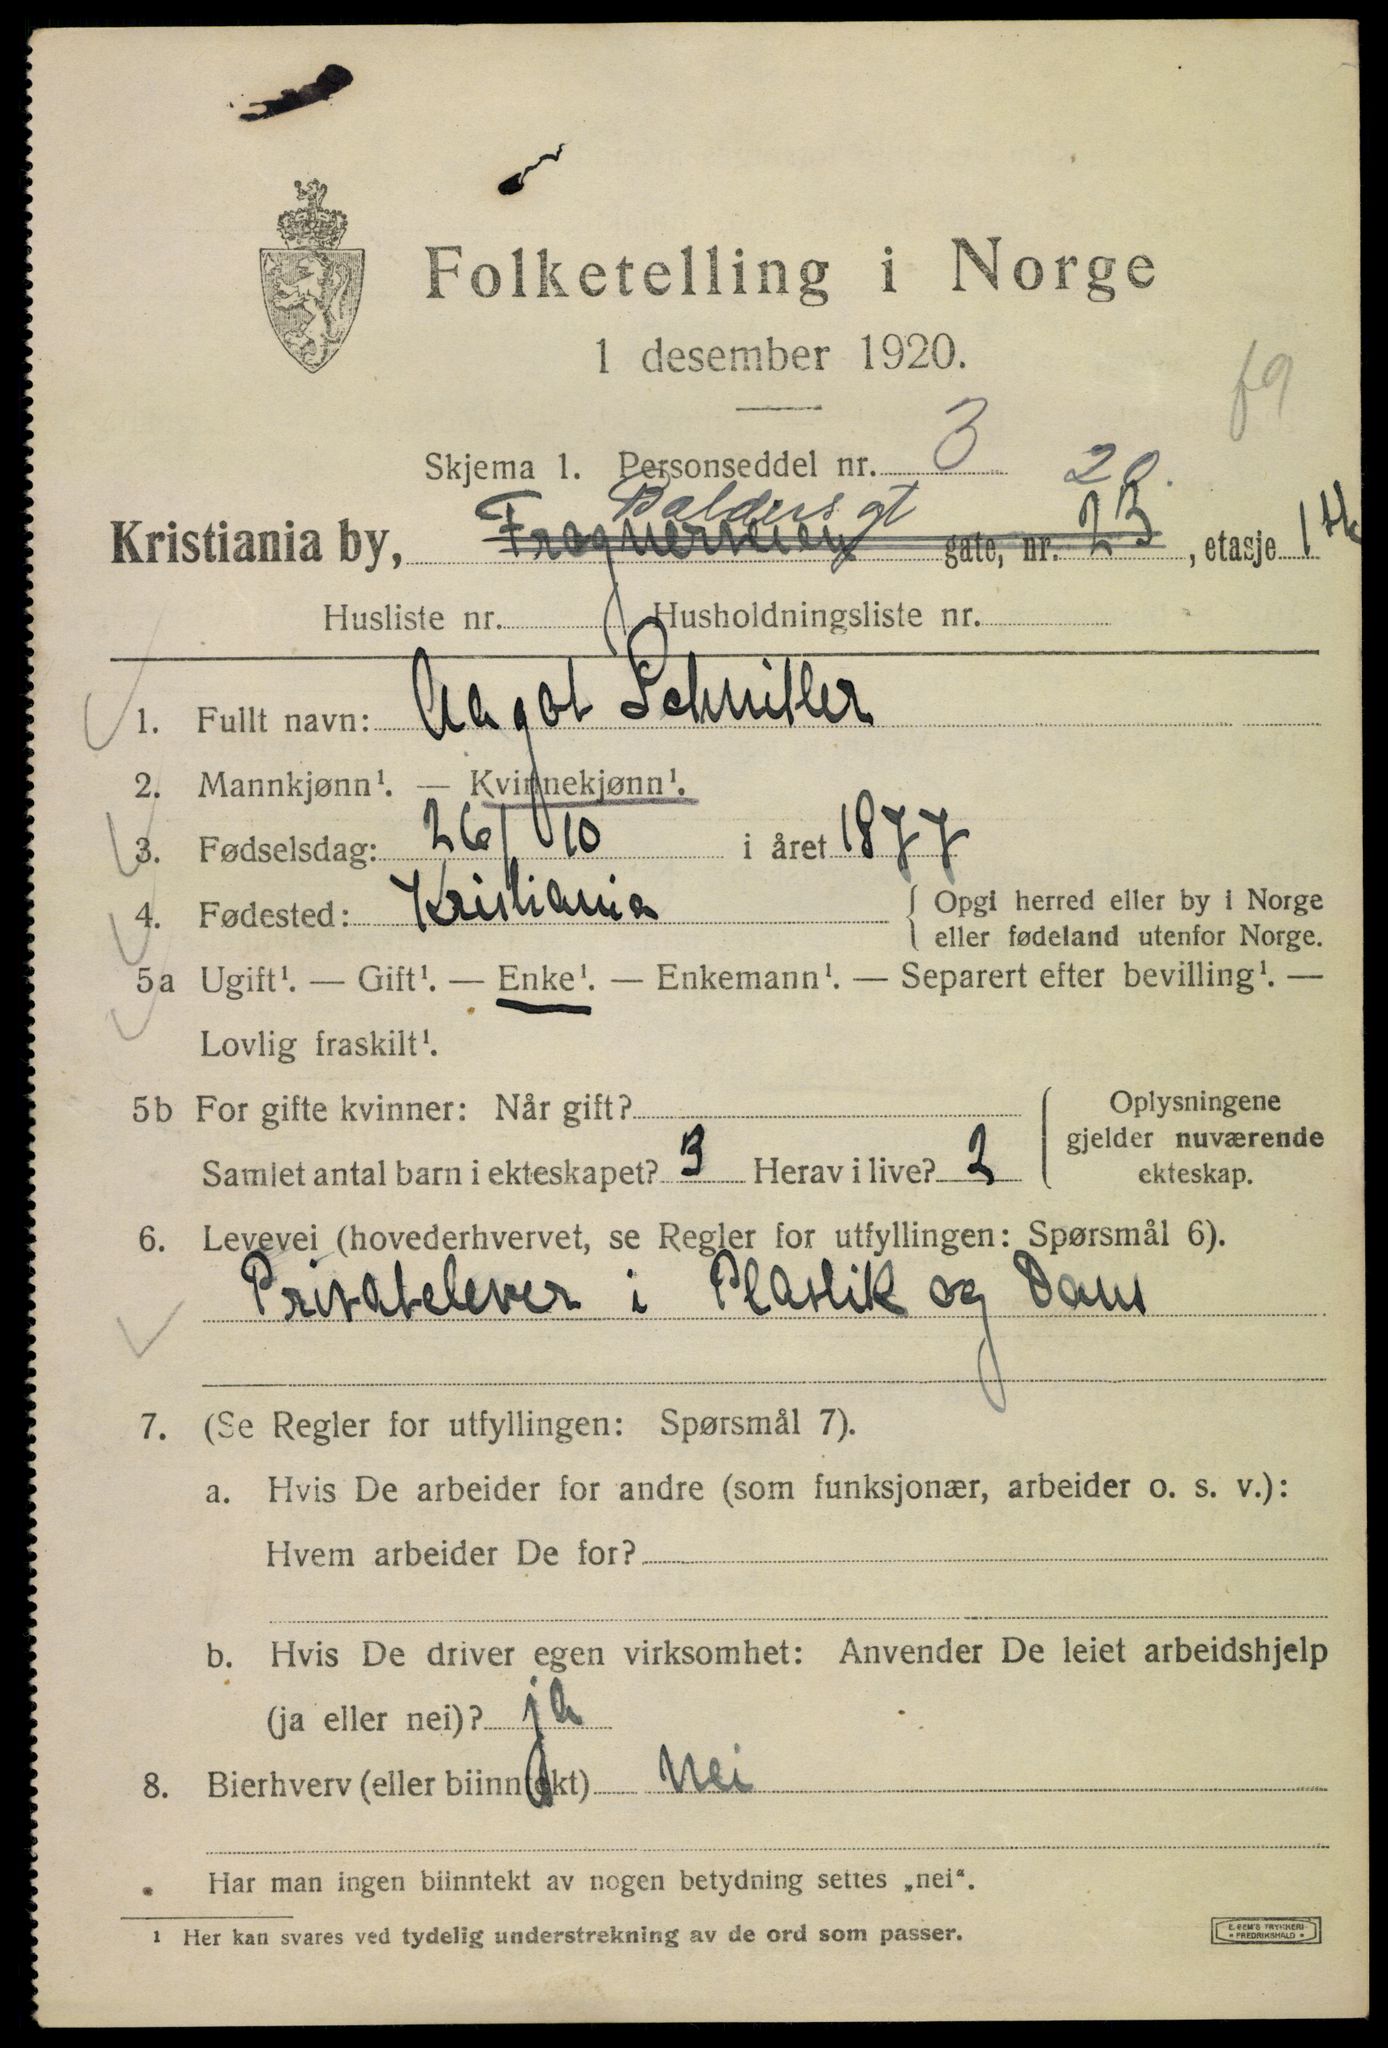 Folketelling i Norge
1 desember 1920.
f9
Skjema 1. Personseddel nr. 3
Baldersgt 20.
Kristiania by, Frognerveien gate, nr. 23, etasje 1ste
Husliste nr. Husholdningsliste nr.
1. Fullt navn: Aagot Schnitler
2. Mannkjønn¹. — Kvinnekjønn¹.
3. Fødselsdag: 26/10 i året 1877
4. Fødested: Kristiania { Opgi herred eller by i Norge
eller fødeland utenfor Norge.
5a Ugift¹. — Gift¹. — Enke¹. — Enkemann¹. — Separert efter bevilling¹. —
Lovlig fraskilt¹.
5b For gifte kvinner: Når gift?
Samlet antal barn i ekteskapet? 3 Herav i live? 2
{ Oplysningene
gjelder nuværende
ekteskap.
6. Levevei (hovederhvervet, se Regler for utfyllingen: Spørsmål 6).
Privatelever i Plastik og Dans
7. (Se Regler for utfyllingen: Spørsmål 7).
a. Hvis De arbeider for andre (som funksjonær, arbeider o. s. v.):
Hvem arbeider De for?
b. Hvis De driver egen virksomhet: Anvender De leiet arbeidshjelp
(ja eller nei)? ja
8. Bierhverv (eller biinntekt) Nei
Har man ingen biinntekt av nogen betydning settes „nei“.
¹ Her kan svares ved tydelig understrekning av de ord som passer.
E. SEM'S TRYKKERI
* FREDRIKSHALD *